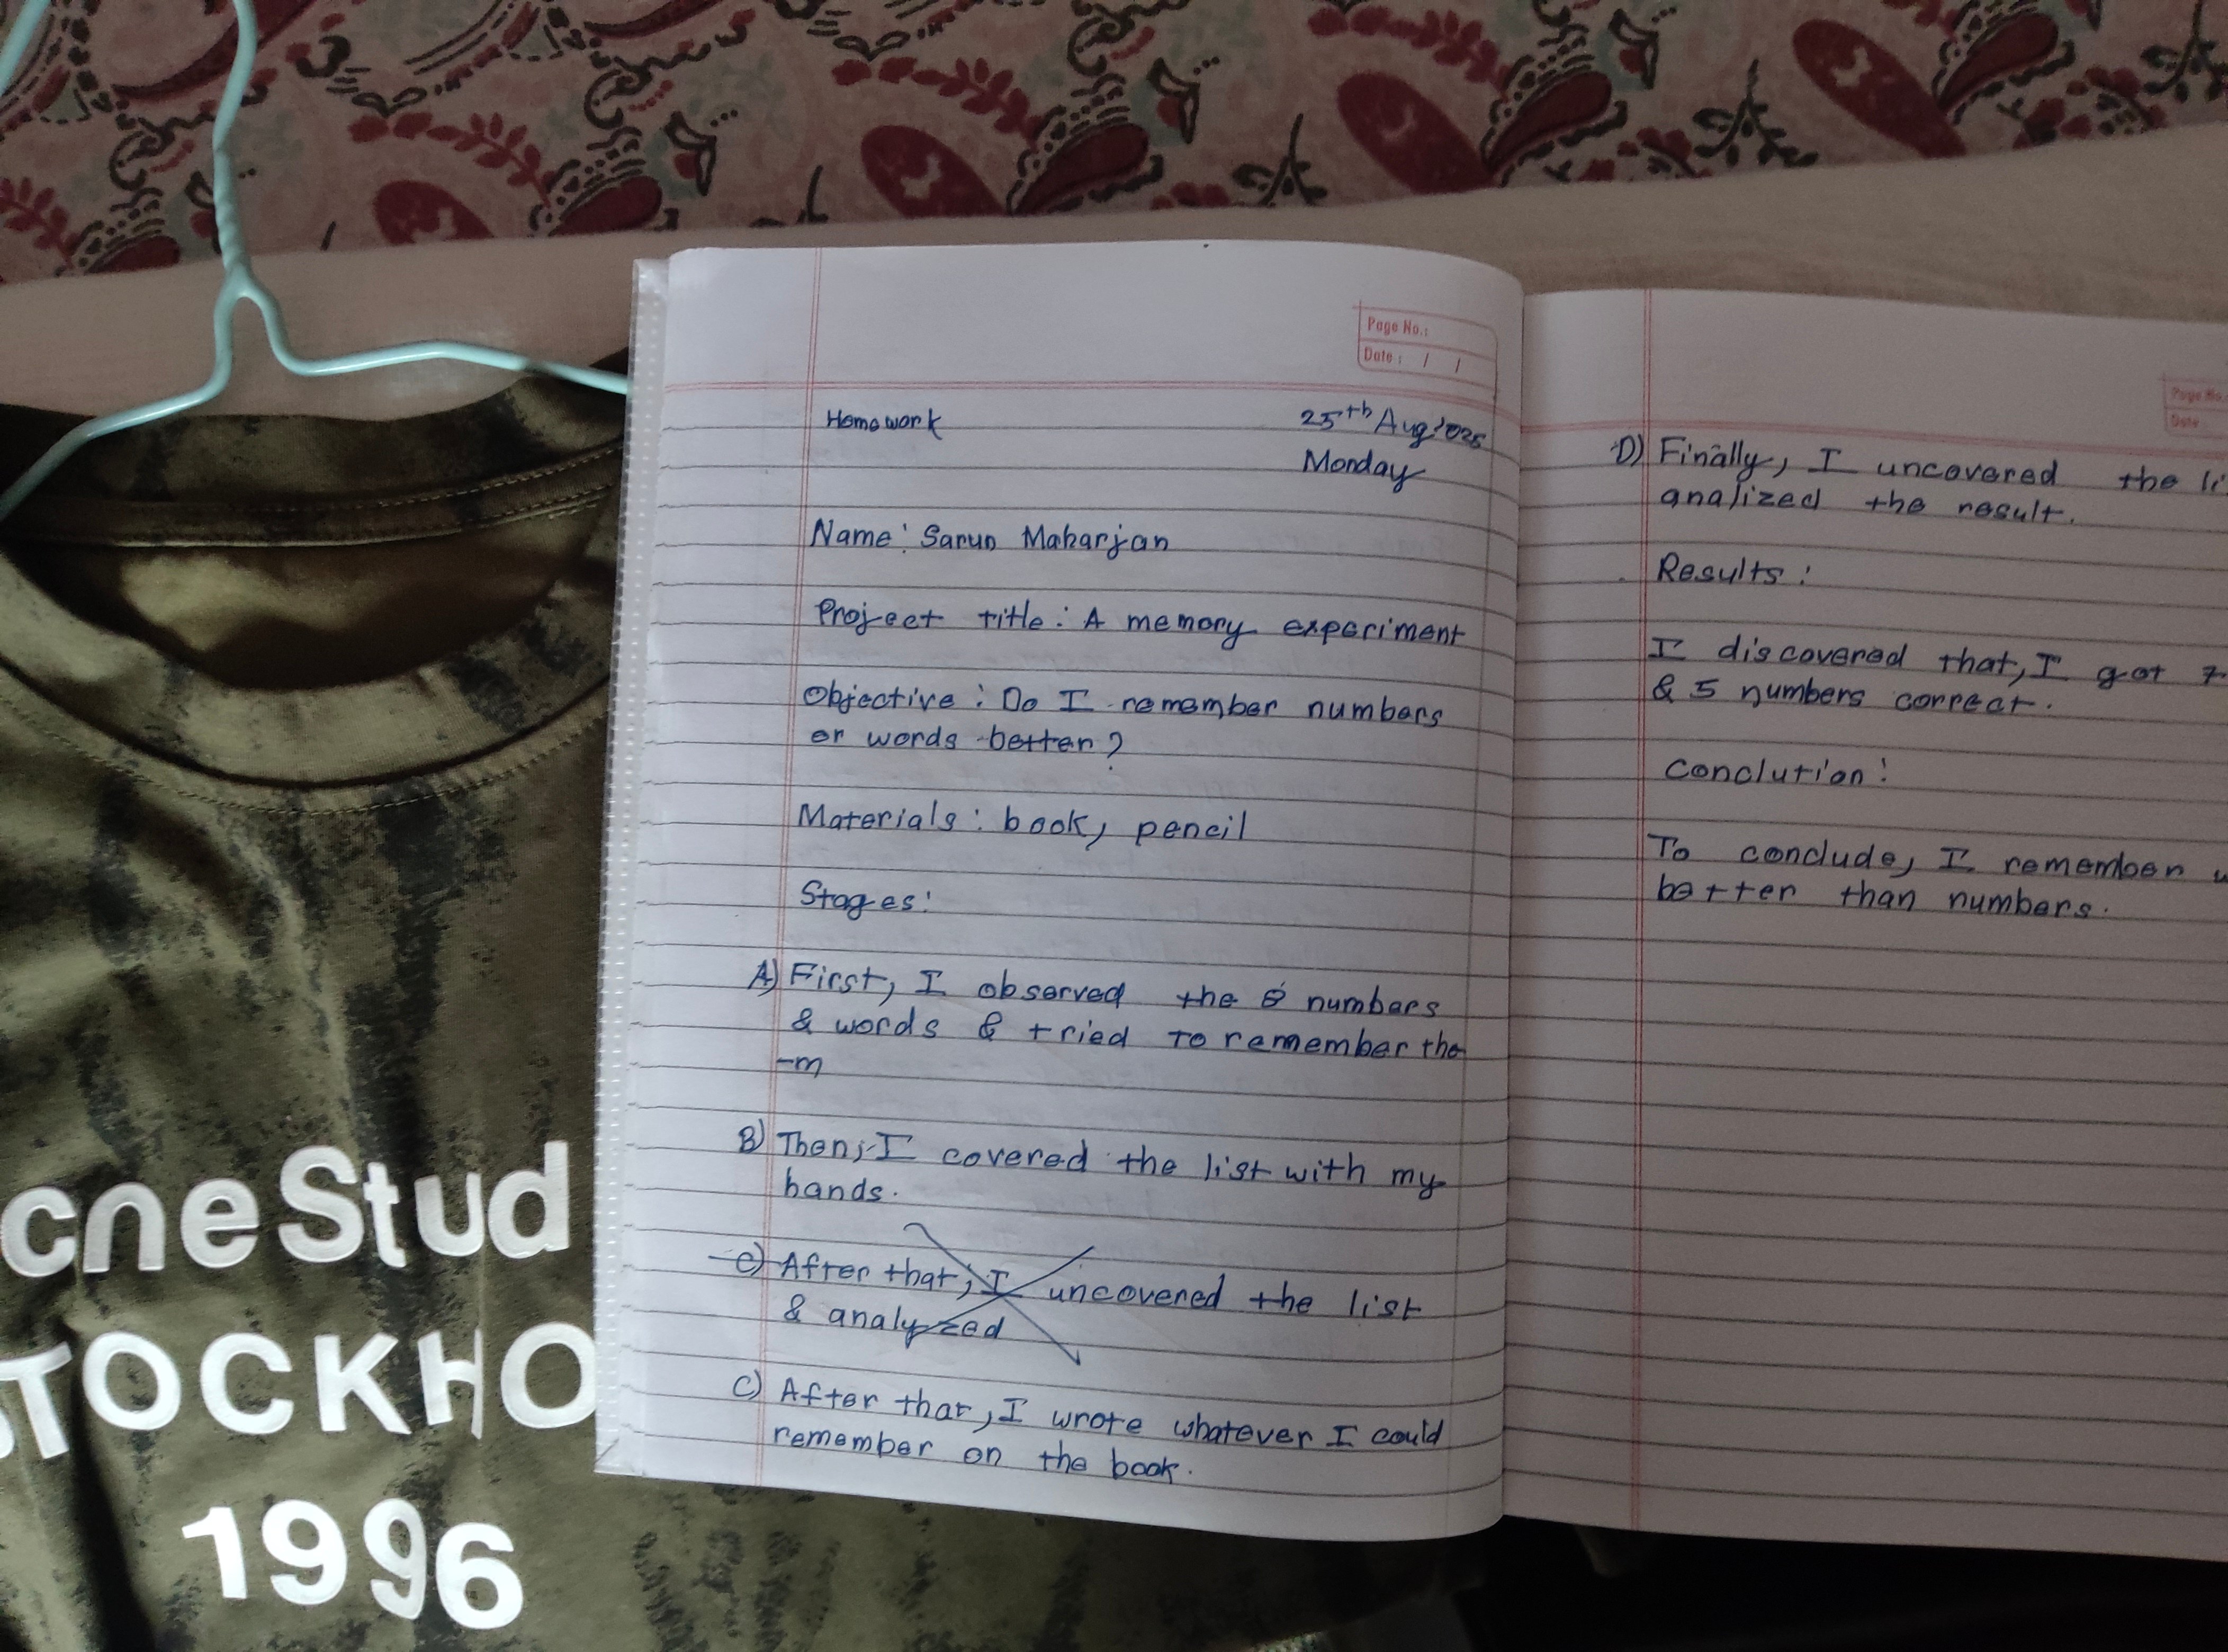 Page No.:
Date: / /
Homework
25th Aug'025
Monday
Name: Sarun Maharjan
Project title: A memory experiment
Objective: Do I remember numbers
or words better?
Materials: book, pencil
Stages:
A) First, I observed the numbers
& words & tried to remember the
-m
B) Then, I covered the list with my
hands.
C) After that, I uncovered the list
& analyzed
C) After that, I wrote whatever I could
remember on the book.
Page No.
Date
D) Finally, I uncovered the li
analized the result.
Results:
I discovered that, I got 7
& 5 numbers correct.
Conclution:
To conclude, I remember w
better than numbers.
cneStud
STOCKHO
1996